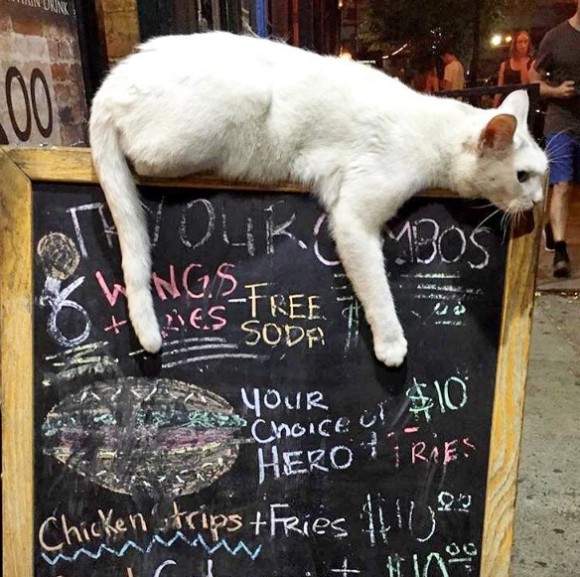 DRINK
00
TRY OUR COMBOS
6 WINGS
+ FRIES FREE
SODA
YOUR
Choice of $10
HERO + FRIES
Chicken Strips + Fries $10.00
$10.00